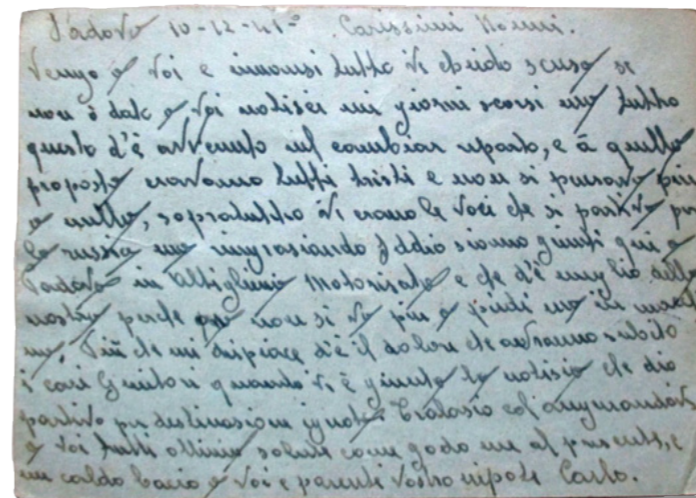 Padova 10-12-41° Carissimi Nonni.
Vengo a Voi e innansi tutto Vi chiedo scusa se
non ò dato a Voi notisei nei giorni scorsi ma tutto
questo d'è avvenuto nel cambiar reparto, e a quella
proposta eravamo tutti tristi e non si pensava più
a nulla, sopratutto Vi erano le voci che si partiva per
la russia ma ringrasiando Iddio siamo giunti qui a
Padova in Artiglieria Motorisata e che d'è meglio della
nostra perche non si va più a piedi ma in
Più che mi dispiace d'è il dolore che avranno subito
i cari Genitori quando Vi è giunta la notisia che dio
partivo per destinasione ignota. Tralascio col augurandovi
a Voi tutti ottima salute come godo me al presente, e
un caldo bacio a Voi e parenti Vostro nipote Carlo.